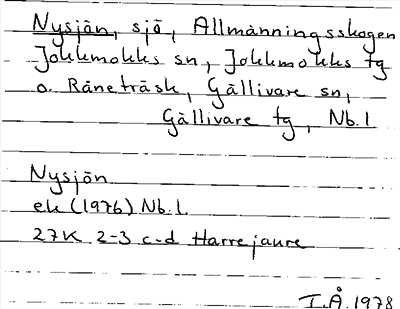 Nysjön, sjö, Allmänningsskogen
Jokkmokks sn, Jokkmokks tg
o. Råneträsk, Gällivare sn,
Gällivare tg, Nb.l
Nysjön
ek (1976) Nb.l.
27K 2-3 c-d Harrejaure
I.Å. 1978